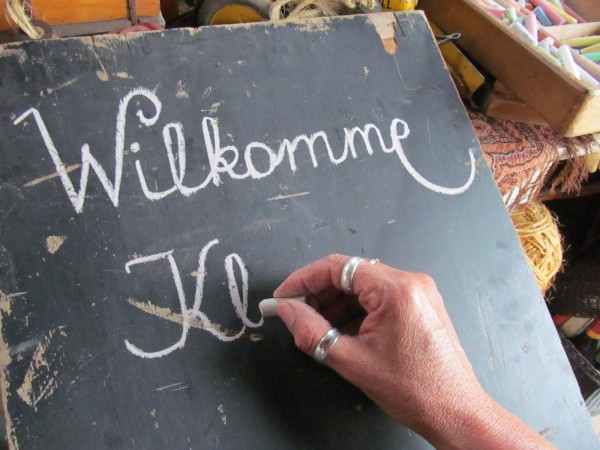 Wilkomme
Kl